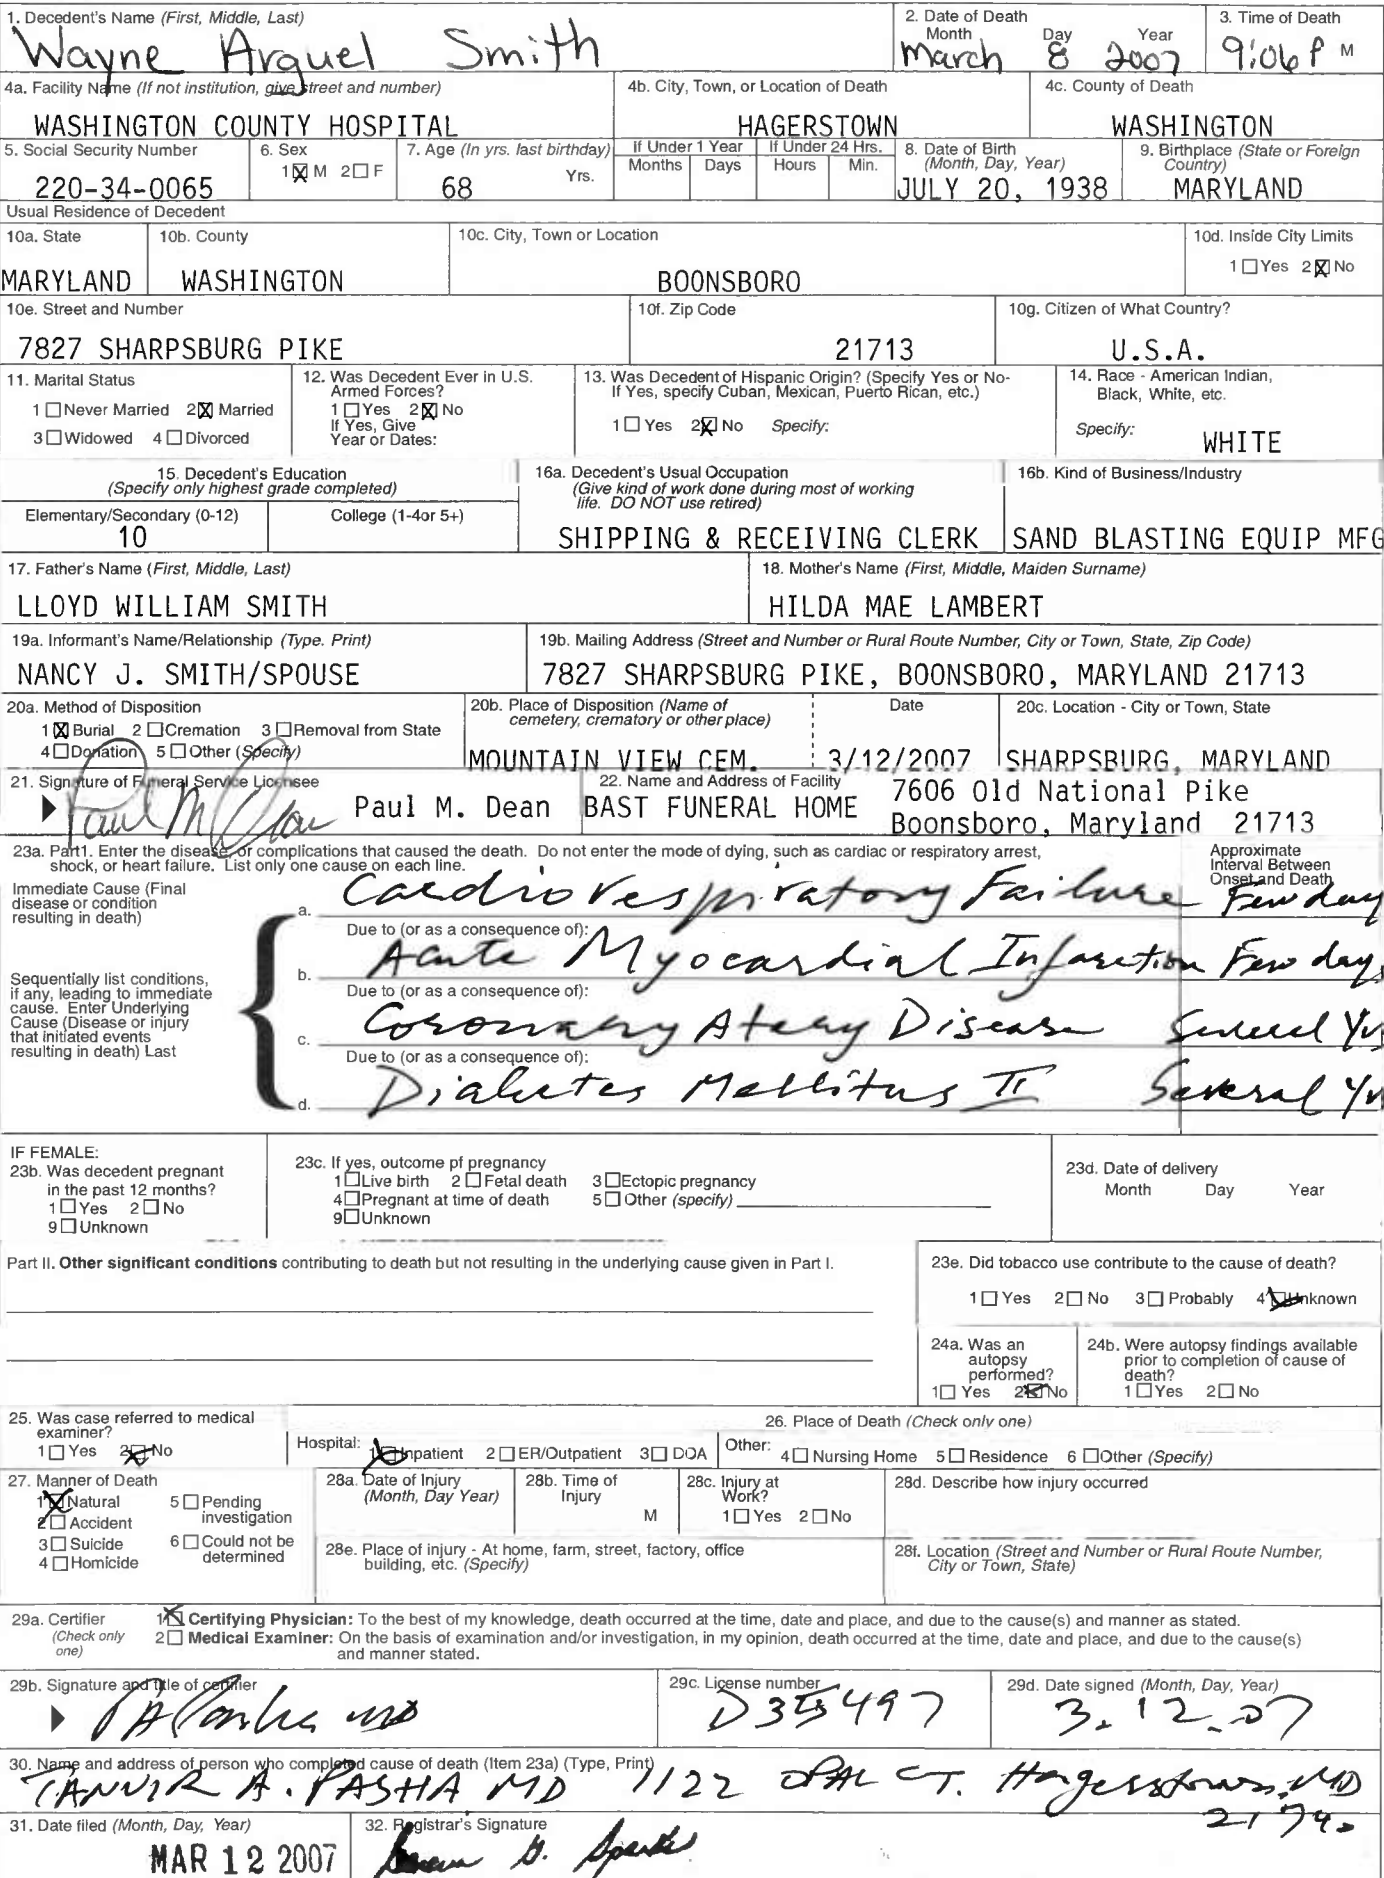 1. Decedent's Name (First, Middle, Last)
Wayne Arguel Smith
2. Date of Death
Month Day Year
March 8 2007
3. Time of Death
9:06 P M
4a. Facility Name (If not institution, give street and number)
WASHINGTON COUNTY HOSPITAL
4b. City, Town, or Location of Death
HAGERSTOWN
4c. County of Death
WASHINGTON
5. Social Security Number
220-34-0065
6. Sex
1☒ M 2☐ F
7. Age (In yrs. last birthday)
68 Yrs.
If Under 1 Year
Months Days
If Under 24 Hrs.
Hours Min.
8. Date of Birth
(Month, Day, Year)
JULY 20, 1938
9. Birthplace (State or Foreign
Country)
MARYLAND
Usual Residence of Decedent
10a. State
MARYLAND
10b. County
WASHINGTON
10c. City, Town or Location
BOONSBORO
10d. Inside City Limits
1☐Yes 2☒No
10e. Street and Number
7827 SHARPSBURG PIKE
10f. Zip Code
21713
10g. Citizen of What Country?
U.S.A.
11. Marital Status
1☐Never Married 2☒ Married
3☐Widowed 4☐Divorced
12. Was Decedent Ever in U.S.
Armed Forces?
1☐Yes 2☒No
If Yes, Give
Year or Dates:
13. Was Decedent of Hispanic Origin? (Specify Yes or No-
If Yes, specify Cuban, Mexican, Puerto Rican, etc.)
1☐Yes 2☒No Specify:
14. Race - American Indian,
Black, White, etc.
Specify: WHITE
15. Decedent's Education
(Specify only highest grade completed)
Elementary/Secondary (0-12)
10
College (1-4or 5+)
16a. Decedent's Usual Occupation
(Give kind of work done during most of working
life. DO NOT use retired)
SHIPPING & RECEIVING CLERK
16b. Kind of Business/Industry
SAND BLASTING EQUIP MFG
17. Father's Name (First, Middle, Last)
LLOYD WILLIAM SMITH
18. Mother's Name (First, Middle, Maiden Surname)
HILDA MAE LAMBERT
19a. Informant's Name/Relationship (Type. Print)
NANCY J. SMITH/SPOUSE
19b. Mailing Address (Street and Number or Rural Route Number, City or Town, State, Zip Code)
7827 SHARPSBURG PIKE, BOONSBORO, MARYLAND 21713
20a. Method of Disposition
1☒Burial 2☐Cremation 3☐Removal from State
4☐Donation 5☐Other (Specify)
20b. Place of Disposition (Name of
cemetery, crematory or other place)
MOUNTAIN VIEW CEM.
Date
3/12/2007
20c. Location - City or Town, State
SHARPSBURG, MARYLAND
21. Signature of Funeral Service Licensee
Paul M Dean Paul M. Dean
22. Name and Address of Facility
BAST FUNERAL HOME
7606 Old National Pike
Boonsboro, Maryland 21713
23a. Part1. Enter the disease, or complications that caused the death. Do not enter the mode of dying, such as cardiac or respiratory arrest,
shock, or heart failure. List only one cause on each line.
Approximate
Interval Between
Onset and Death
Immediate Cause (Final
disease or condition
resulting in death)
a. Cardio Respiratory Failure Few days
Due to (or as a consequence of):
b. Acute Myocardial Infarction Few days
Sequentially list conditions,
if any, leading to immediate
cause. Enter Underlying
Cause (Disease or injury
that initiated events
resulting in death) Last
Due to (or as a consequence of):
c. Coronary Atery Disease Several Yrs
Due to (or as a consequence of):
d. Diabetes Mellitus II Several Yrs
IF FEMALE:
23b. Was decedent pregnant
in the past 12 months?
1☐Yes 2☐No
9☐Unknown
23c. If yes, outcome pf pregnancy
1☐Live birth 2☐Fetal death 3☐Ectopic pregnancy
4☐Pregnant at time of death 5☐Other (specify)
9☐Unknown
23d. Date of delivery
Month Day Year
Part II. Other significant conditions contributing to death but not resulting in the underlying cause given in Part I.
23e. Did tobacco use contribute to the cause of death?
1☐Yes 2☐No 3☐Probably 4☒Unknown
24a. Was an
autopsy
performed?
1☐Yes 2☒No
24b. Were autopsy findings available
prior to completion of cause of
death?
1☐Yes 2☐No
25. Was case referred to medical
examiner?
1☐Yes 2☒No
26. Place of Death (Check only one)
Hospital: 1☒Inpatient 2☐ER/Outpatient 3☐DOA
Other: 4☐Nursing Home 5☐Residence 6☐Other (Specify)
27. Manner of Death
1☒Natural 5☐Pending
investigation
2☐Accident
3☐Suicide 6☐Could not be
determined
4☐Homicide
28a. Date of Injury
(Month, Day Year)
28b. Time of
Injury
M
28c. Injury at
Work?
1☐Yes 2☐No
28d. Describe how injury occurred
28e. Place of injury - At home, farm, street, factory, office
building, etc. (Specify)
28f. Location (Street and Number or Rural Route Number,
City or Town, State)
29a. Certifier
(Check only
one)
1☒Certifying Physician: To the best of my knowledge, death occurred at the time, date and place, and due to the cause(s) and manner as stated.
2☐Medical Examiner: On the basis of examination and/or investigation, in my opinion, death occurred at the time, date and place, and due to the cause(s)
and manner stated.
29b. Signature and title of certifier
29c. License number
29d. Date signed (Month, Day, Year)
3.12.07
30. Name and address of person who completed cause of death (Item 23a) (Type, Print)
TANVIR A. PASHA MD 1122 OPAL CT. Hagerstown, MD
21740
31. Date filed (Month, Day, Year)
MAR 12 2007
32. Registrar's Signature